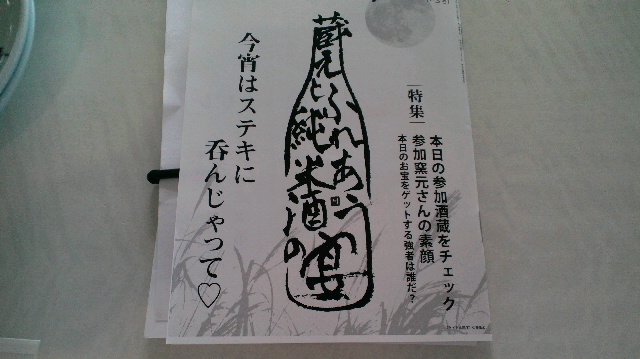 蔵元とふれあう
純米酒の宴
|特集|
本日の参加酒蔵をチェック
参加窯元さんの素顔
本日のお宝をゲットする強者は誰だ?
今宵はステキに
呑んじゃって♡